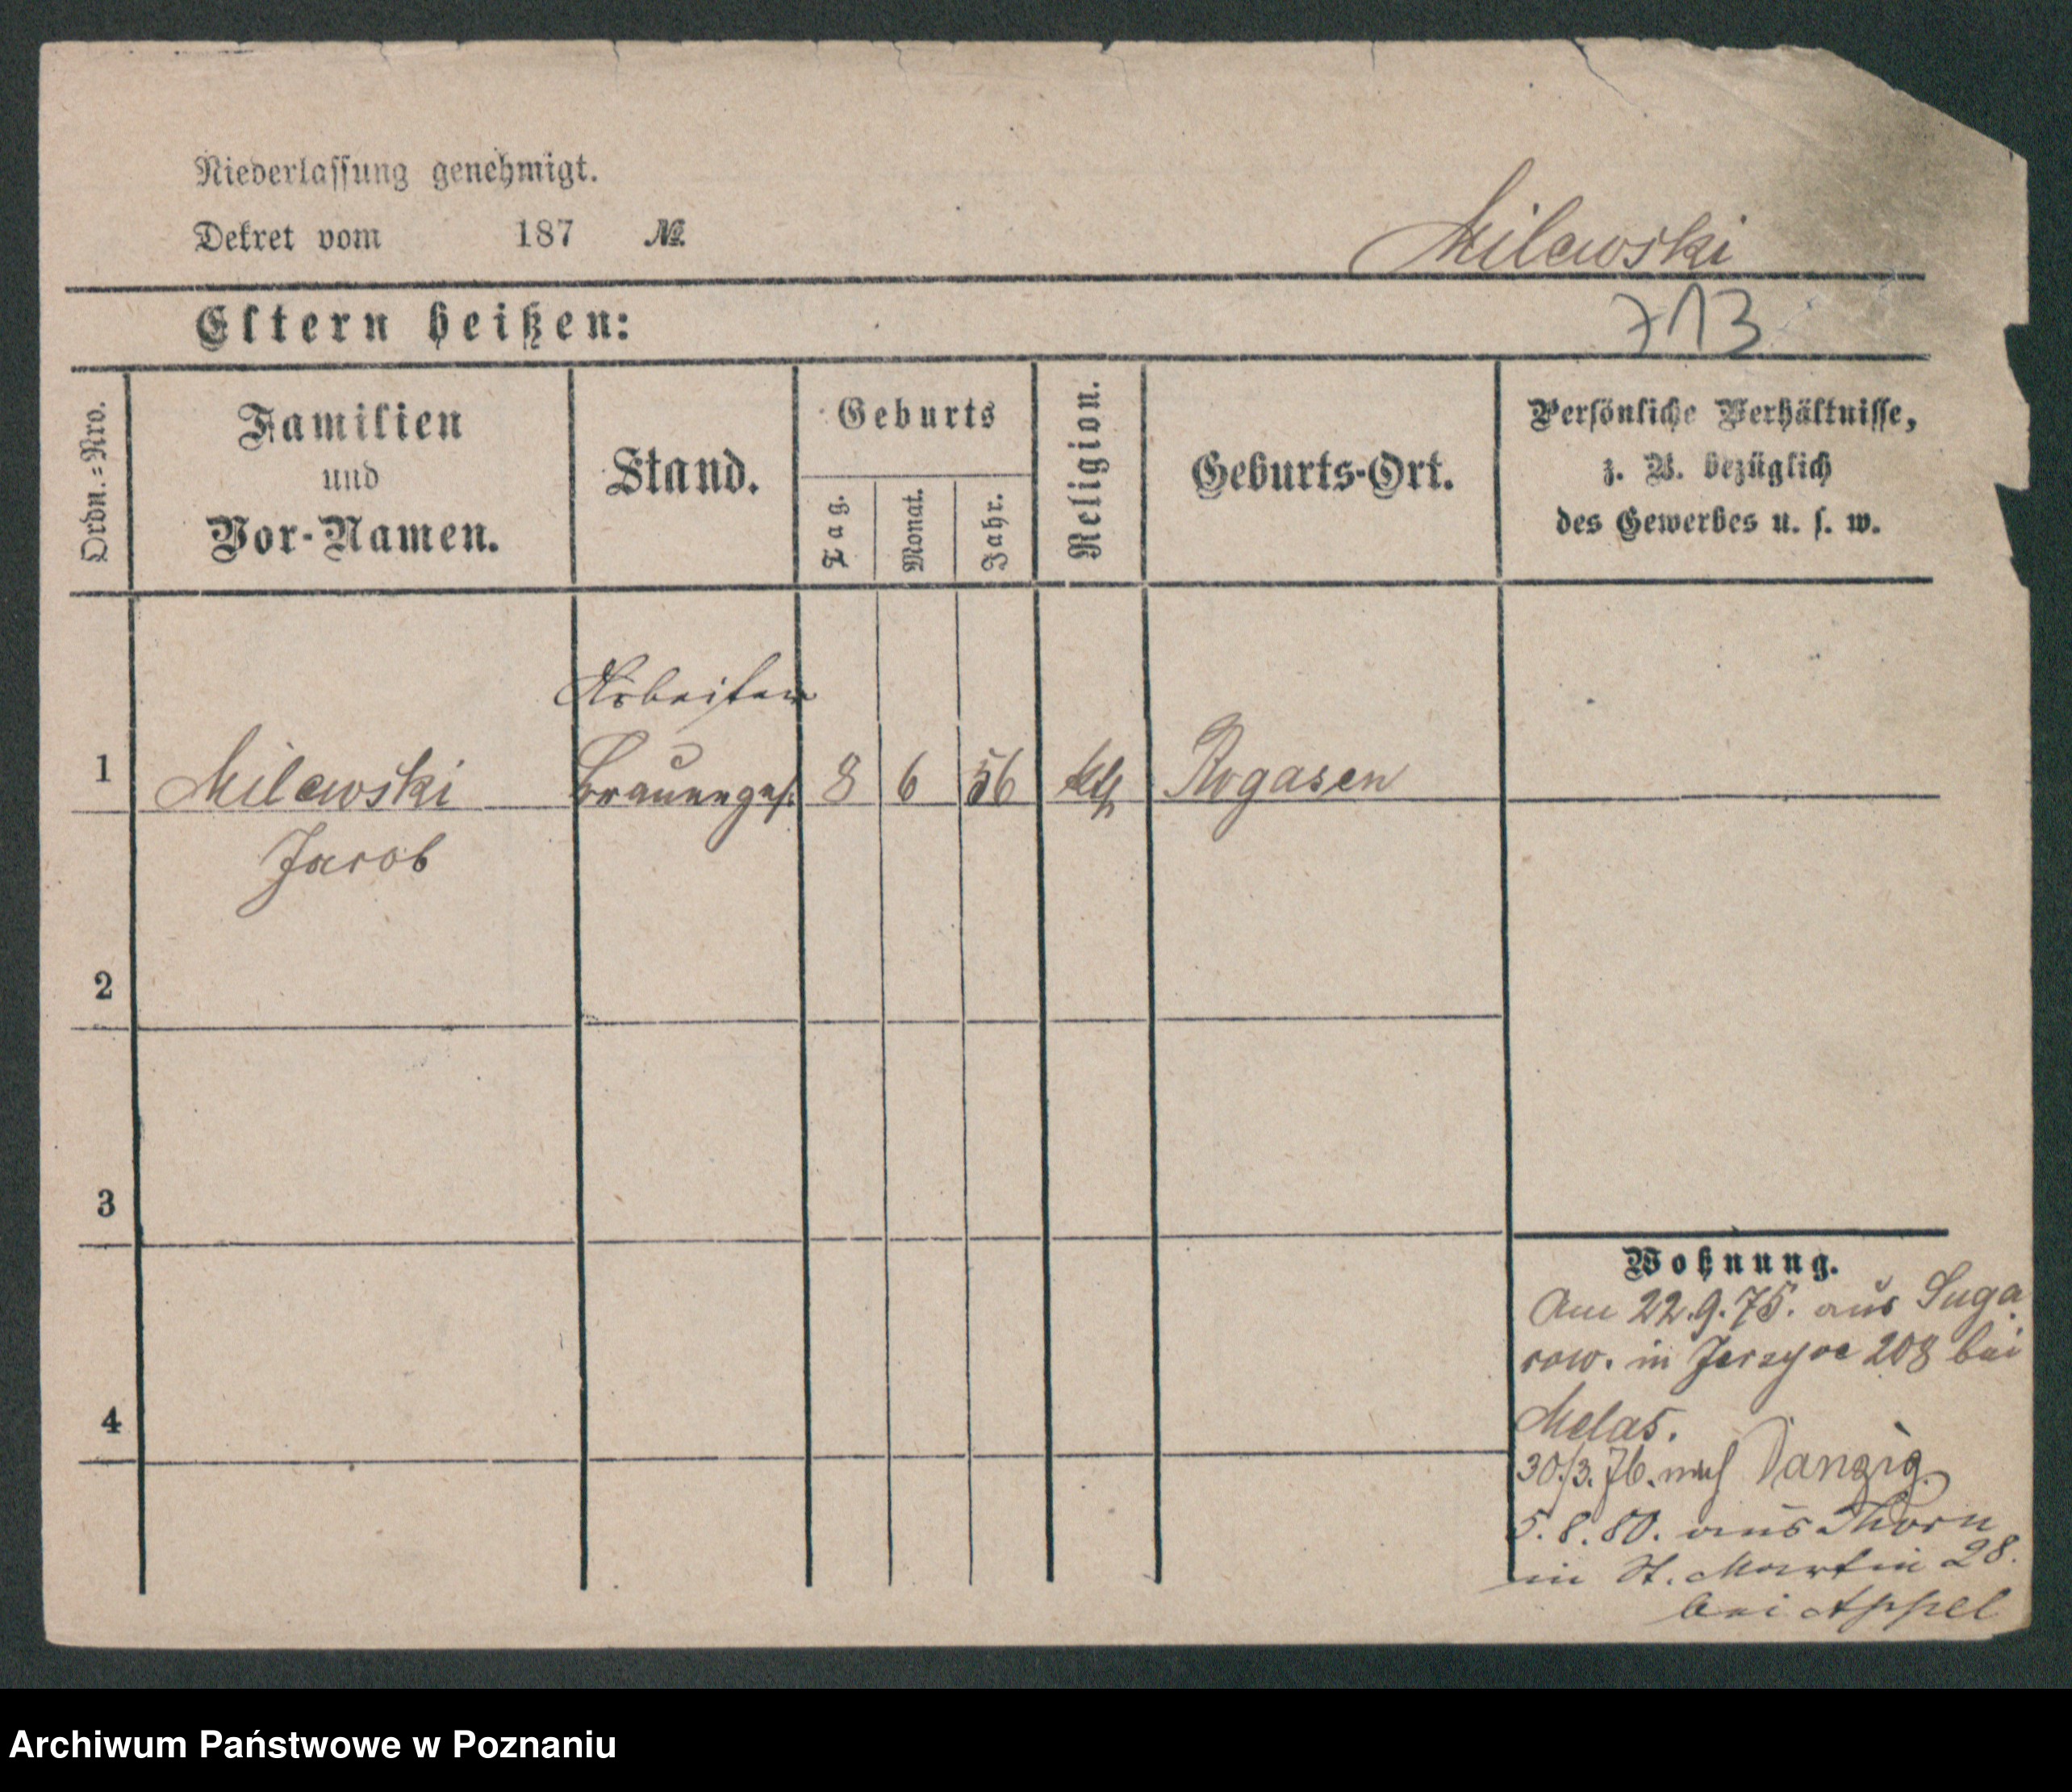 Niederlassung genehmigt.
Dekret vom 187 №
Milewski
Eltern heißen:
713
Ordn.=Nro.
Familien
und
Vor-Namen.
Stand.
Geburts
Tag.
Monat.
Jahr.
Religion.
Geburts-Ort.
Persönliche Verhältnisse,
z. B. bezüglich
des Gewerbes u. s. w.
Arbeiter
1 Milewski Brauerges. 8 6 56 kth Rogasen
Jacob
2
3
4
Wohnung.
Am 22.9.75. aus Suga
row. in Jerzyce 208 bei
Melas.
30./3.76. nach Danzig.
5.8.80. aus Thorn
in St. Martin 28.
bei Appel
Archiwum Państwowe w Poznaniu